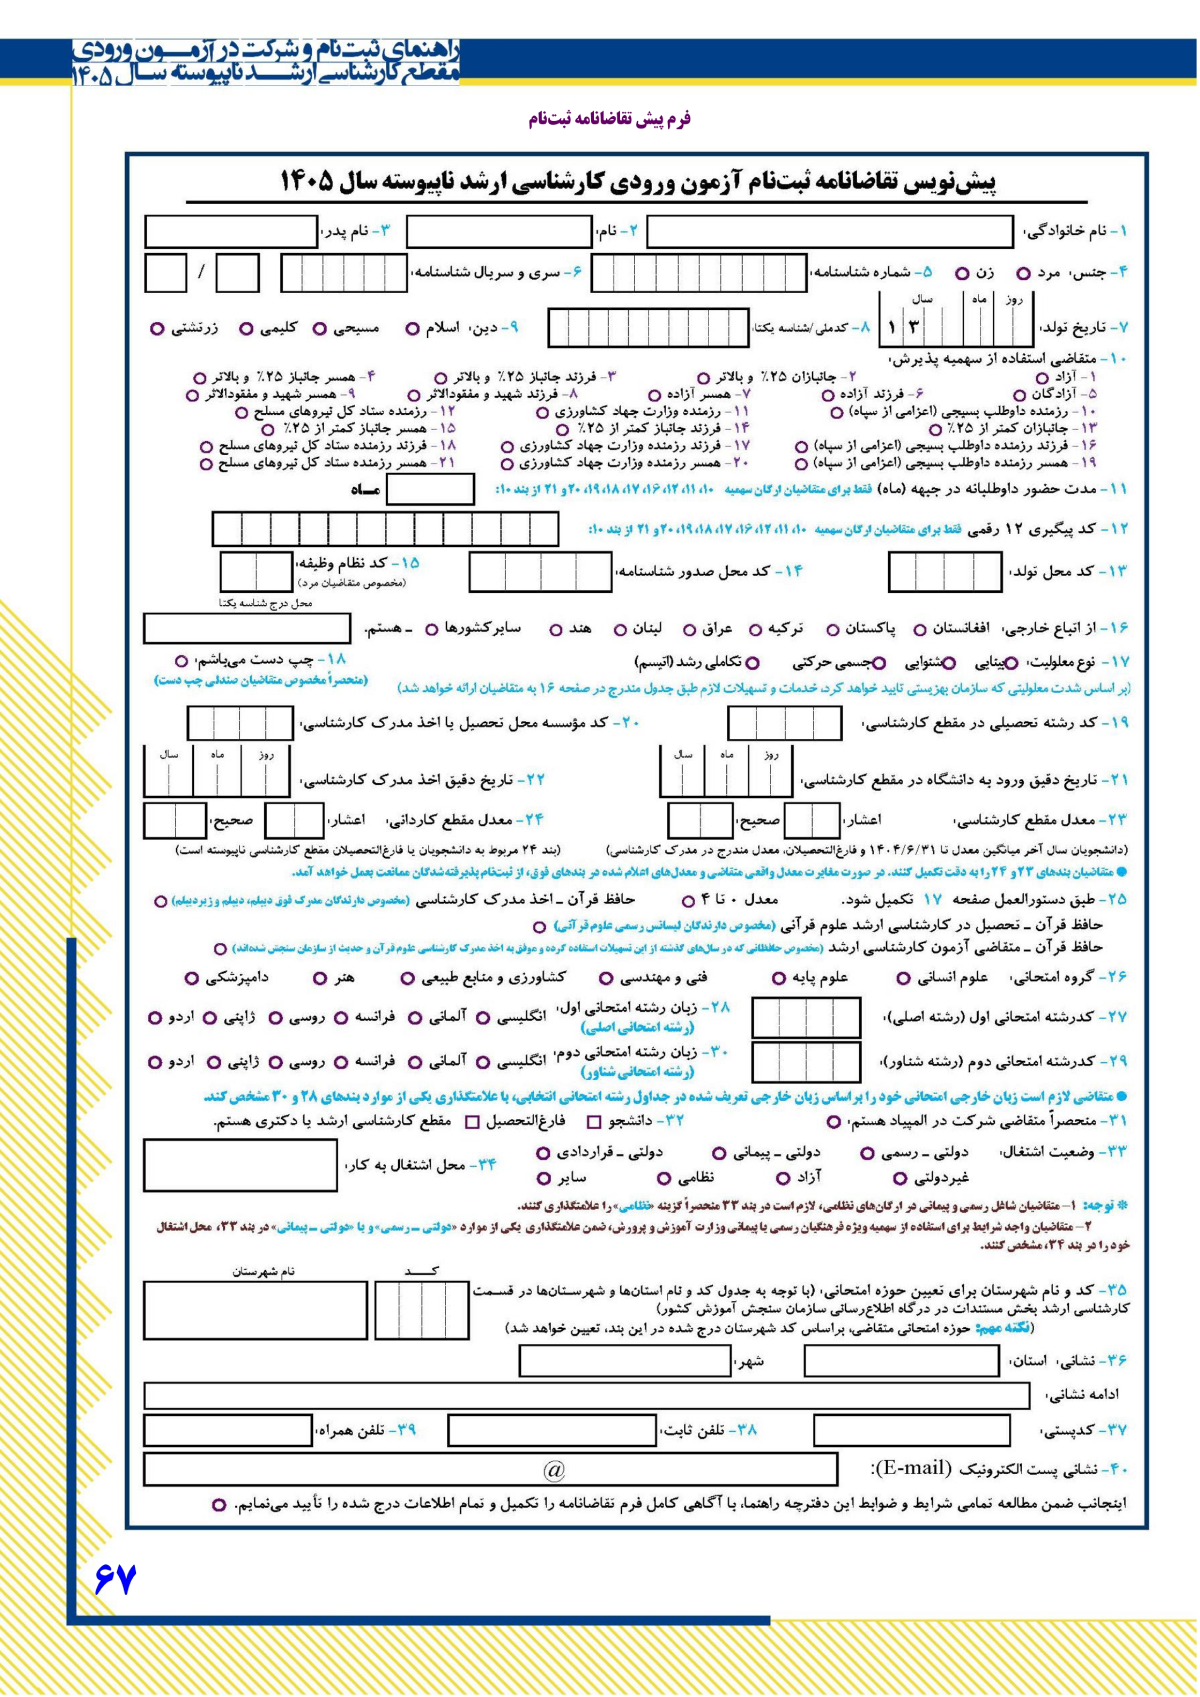 راهنمای ثبت‌نام و شرکت در آزمـــون ورودی
مقطع کارشناسی ارشـــد ناپیوسته ســال ۱۴۰۵
فرم پیش تقاضانامه ثبت‌نام
پیش‌نویس تقاضانامه ثبت‌نام آزمون ورودی کارشناسی ارشد ناپیوسته سال ۱۴۰۵
۱- نام خانوادگی: ۲- نام: ۳- نام پدر:
۴- جنس: مرد زن ۵- شماره شناسنامه: ۶- سری و سریال شناسنامه: /
روز ماه سال
۷- تاریخ تولد: ۱۳ ۸- کدملی/شناسه یکتا: ۹- دین: اسلام مسیحی کلیمی زرتشتی
۱۰- متقاضی استفاده از سهمیه پذیرش:
۱- آزاد ۲- جانبازان ۲۵٪ و بالاتر ۳- فرزند جانباز ۲۵٪ و بالاتر ۴- همسر جانباز ۲۵٪ و بالاتر
۵- آزادگان ۶- فرزند آزاده ۷- همسر آزاده ۸- فرزند شهید و مفقودالاثر ۹- همسر شهید و مفقودالاثر
۱۰- رزمنده داوطلب بسیجی (اعزامی از سپاه) ۱۱- رزمنده وزارت جهاد کشاورزی ۱۲- رزمنده ستاد کل نیروهای مسلح
۱۳- جانبازان کمتر از ۲۵٪ ۱۴- فرزند جانباز کمتر از ۲۵٪ ۱۵- همسر جانباز کمتر از ۲۵٪
۱۶- فرزند رزمنده داوطلب بسیجی (اعزامی از سپاه) ۱۷- فرزند رزمنده وزارت جهاد کشاورزی ۱۸- فرزند رزمنده ستاد کل نیروهای مسلح
۱۹- همسر رزمنده داوطلب بسیجی (اعزامی از سپاه) ۲۰- همسر رزمنده وزارت جهاد کشاورزی ۲۱- همسر رزمنده ستاد کل نیروهای مسلح
۱۱- مدت حضور داوطلبانه در جبهه (ماه) فقط برای متقاضیان ارگان سهمیه ۱۰، ۱۱، ۱۲، ۱۶، ۱۷، ۱۸، ۱۹، ۲۰ و ۲۱ از بند ۱۰: مــاه
۱۲- کد پیگیری ۱۲ رقمی فقط برای متقاضیان ارگان سهمیه ۱۰، ۱۱، ۱۲، ۱۶، ۱۷، ۱۸، ۱۹، ۲۰ و ۲۱ از بند ۱۰:
۱۳- کد محل تولد: ۱۴- کد محل صدور شناسنامه: ۱۵- کد نظام وظیفه:
(مخصوص متقاضیان مرد)
محل درج شناسه یکتا
۱۶- از اتباع خارجی: افغانستان پاکستان ترکیه عراق لبنان هند سایر کشورها ـ هستم.
۱۷- نوع معلولیت: بینایی شنوایی جسمی حرکتی تکاملی رشد (اتیسم) ۱۸- چپ دست می‌باشم:
(منحصراً مخصوص متقاضیان صندلی چپ دست)
(بر اساس شدت معلولیتی که سازمان بهزیستی تایید خواهد کرد، خدمات و تسهیلات لازم طبق جدول مندرج در صفحه ۱۶ به متقاضیان ارائه خواهد شد)
۱۹- کد رشته تحصیلی در مقطع کارشناسی: ۲۰- کد مؤسسه محل تحصیل یا اخذ مدرک کارشناسی:
روز ماه سال روز ماه سال
۲۱- تاریخ دقیق ورود به دانشگاه در مقطع کارشناسی: ۲۲- تاریخ دقیق اخذ مدرک کارشناسی:
۲۳- معدل مقطع کارشناسی: اعشار: صحیح: ۲۴- معدل مقطع کاردانی: اعشار: صحیح:
(دانشجویان سال آخر میانگین معدل تا ۱۴۰۴/۶/۳۱ و فارغ‌التحصیلان، معدل مندرج در مدرک کارشناسی) (بند ۲۴ مربوط به دانشجویان یا فارغ‌التحصیلان مقطع کارشناسی ناپیوسته است)
● متقاضیان بندهای ۲۳ و ۲۴ را به دقت تکمیل کنند. در صورت مغایرت معدل واقعی متقاضی و معدل‌های اعلام شده در بندهای فوق، از ثبت‌نام پذیرفته‌شدگان ممانعت بعمل خواهد آمد.
۲۵- طبق دستورالعمل صفحه ۱۷ تکمیل شود. معدل ۰ تا ۴ حافظ قرآن ـ اخذ مدرک کارشناسی (مخصوص دارندگان مدرک فوق دیپلم، دیپلم و زیردیپلم)
حافظ قرآن ـ تحصیل در کارشناسی ارشد علوم قرآنی (مخصوص دارندگان لیسانس رسمی علوم قرآنی)
حافظ قرآن ـ متقاضی آزمون کارشناسی ارشد (مخصوص حافظانی که در سال‌های گذشته از این تسهیلات استفاده کرده و موفق به اخذ مدرک کارشناسی علوم قرآن و حدیث از سازمان سنجش شده‌اند)
۲۶- گروه امتحانی: علوم انسانی علوم پایه فنی و مهندسی کشاورزی و منابع طبیعی هنر دامپزشکی
۲۷- کدرشته امتحانی اول (رشته اصلی): ۲۸- زبان رشته امتحانی اول: انگلیسی آلمانی فرانسه روسی ژاپنی اردو
(رشته امتحانی اصلی)
۲۹- کدرشته امتحانی دوم (رشته شناور): ۳۰- زبان رشته امتحانی دوم: انگلیسی آلمانی فرانسه روسی ژاپنی اردو
(رشته امتحانی شناور)
● متقاضی لازم است زبان خارجی امتحانی خود را براساس زبان خارجی تعریف شده در جداول رشته امتحانی انتخابی، با علامتگذاری یکی از موارد بندهای ۲۸ و ۳۰ مشخص کند.
۳۱- منحصراً متقاضی شرکت در المپیاد هستم: ۳۲- دانشجو فارغ‌التحصیل مقطع کارشناسی ارشد یا دکتری هستم.
۳۳- وضعیت اشتغال: دولتی ـ رسمی دولتی ـ پیمانی دولتی ـ قراردادی ۳۴- محل اشتغال به کار:
غیردولتی آزاد نظامی سایر
※ توجه: ۱- متقاضیان شاغل رسمی و پیمانی در ارگان‌های نظامی، لازم است در بند ۳۳ منحصراً گزینه «نظامی» را علامتگذاری کنند.
۲- متقاضیان واجد شرایط برای استفاده از سهمیه ویژه فرهنگیان رسمی یا پیمانی وزارت آموزش و پرورش، ضمن علامتگذاری یکی از موارد «دولتی ـ رسمی» و یا «دولتی ـ پیمانی» در بند ۳۳، محل اشتغال
خود را در بند ۳۴، مشخص کنند.
کـــد نام شهرستان
۳۵- کد و نام شهرستان برای تعیین حوزه امتحانی: (با توجه به جدول کد و نام استان‌ها و شهرستـان‌ها در قسمت
کارشناسی ارشد بخش مستندات در درگاه اطلاع‌رسانی سازمان سنجش آموزش کشور)
(نکته مهم: حوزه امتحانی متقاضی، براساس کد شهرستان درج شده در این بند، تعیین خواهد شد)
۳۶- نشانی: استان: شهر:
ادامه نشانی:
۳۷- کدپستی: ۳۸- تلفن ثابت: ۳۹- تلفن همراه:
۴۰- نشانی پست الکترونیک (E-mail): @
اینجانب ضمن مطالعه تمامی شرایط و ضوابط این دفترچه راهنما، با آگاهی کامل فرم تقاضانامه را تکمیل و تمام اطلاعات درج شده را تأیید می‌نمایم.
۶۷